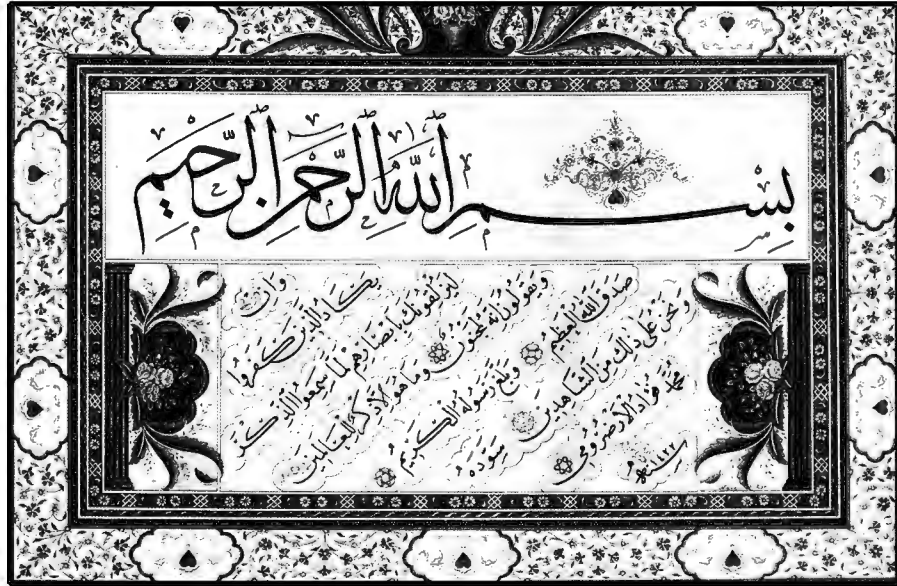 بِسْمِ اللهِ الرَّحْمٰنِ الرَّحِيمِ
وَاِنْ
يَكَادُ الَّذِينَ كَفَرُوا
لَيُزْلِقُونَكَ بِاَبْصَارِهِمْ لَمَّا سَمِعُوا الذِّكْرَ
وَيَقُولُونَ اِنَّهُ لَمَجْنُونٌ وَمَا هُوَ اِلَّا ذِكْرٌ لِلْعَالَمِينَ
صَدَقَ اللهُ الْعَظِيمُ وَبَلَّغَ رَسُولُهُ الْكَرِيمُ
وَنَحْنُ عَلَى ذَلِكَ مِنَ الشَّاهِدِينَ سَوَّدَهُ
مُحَمَّد فُؤَاد الْاَرْضَرُومِي